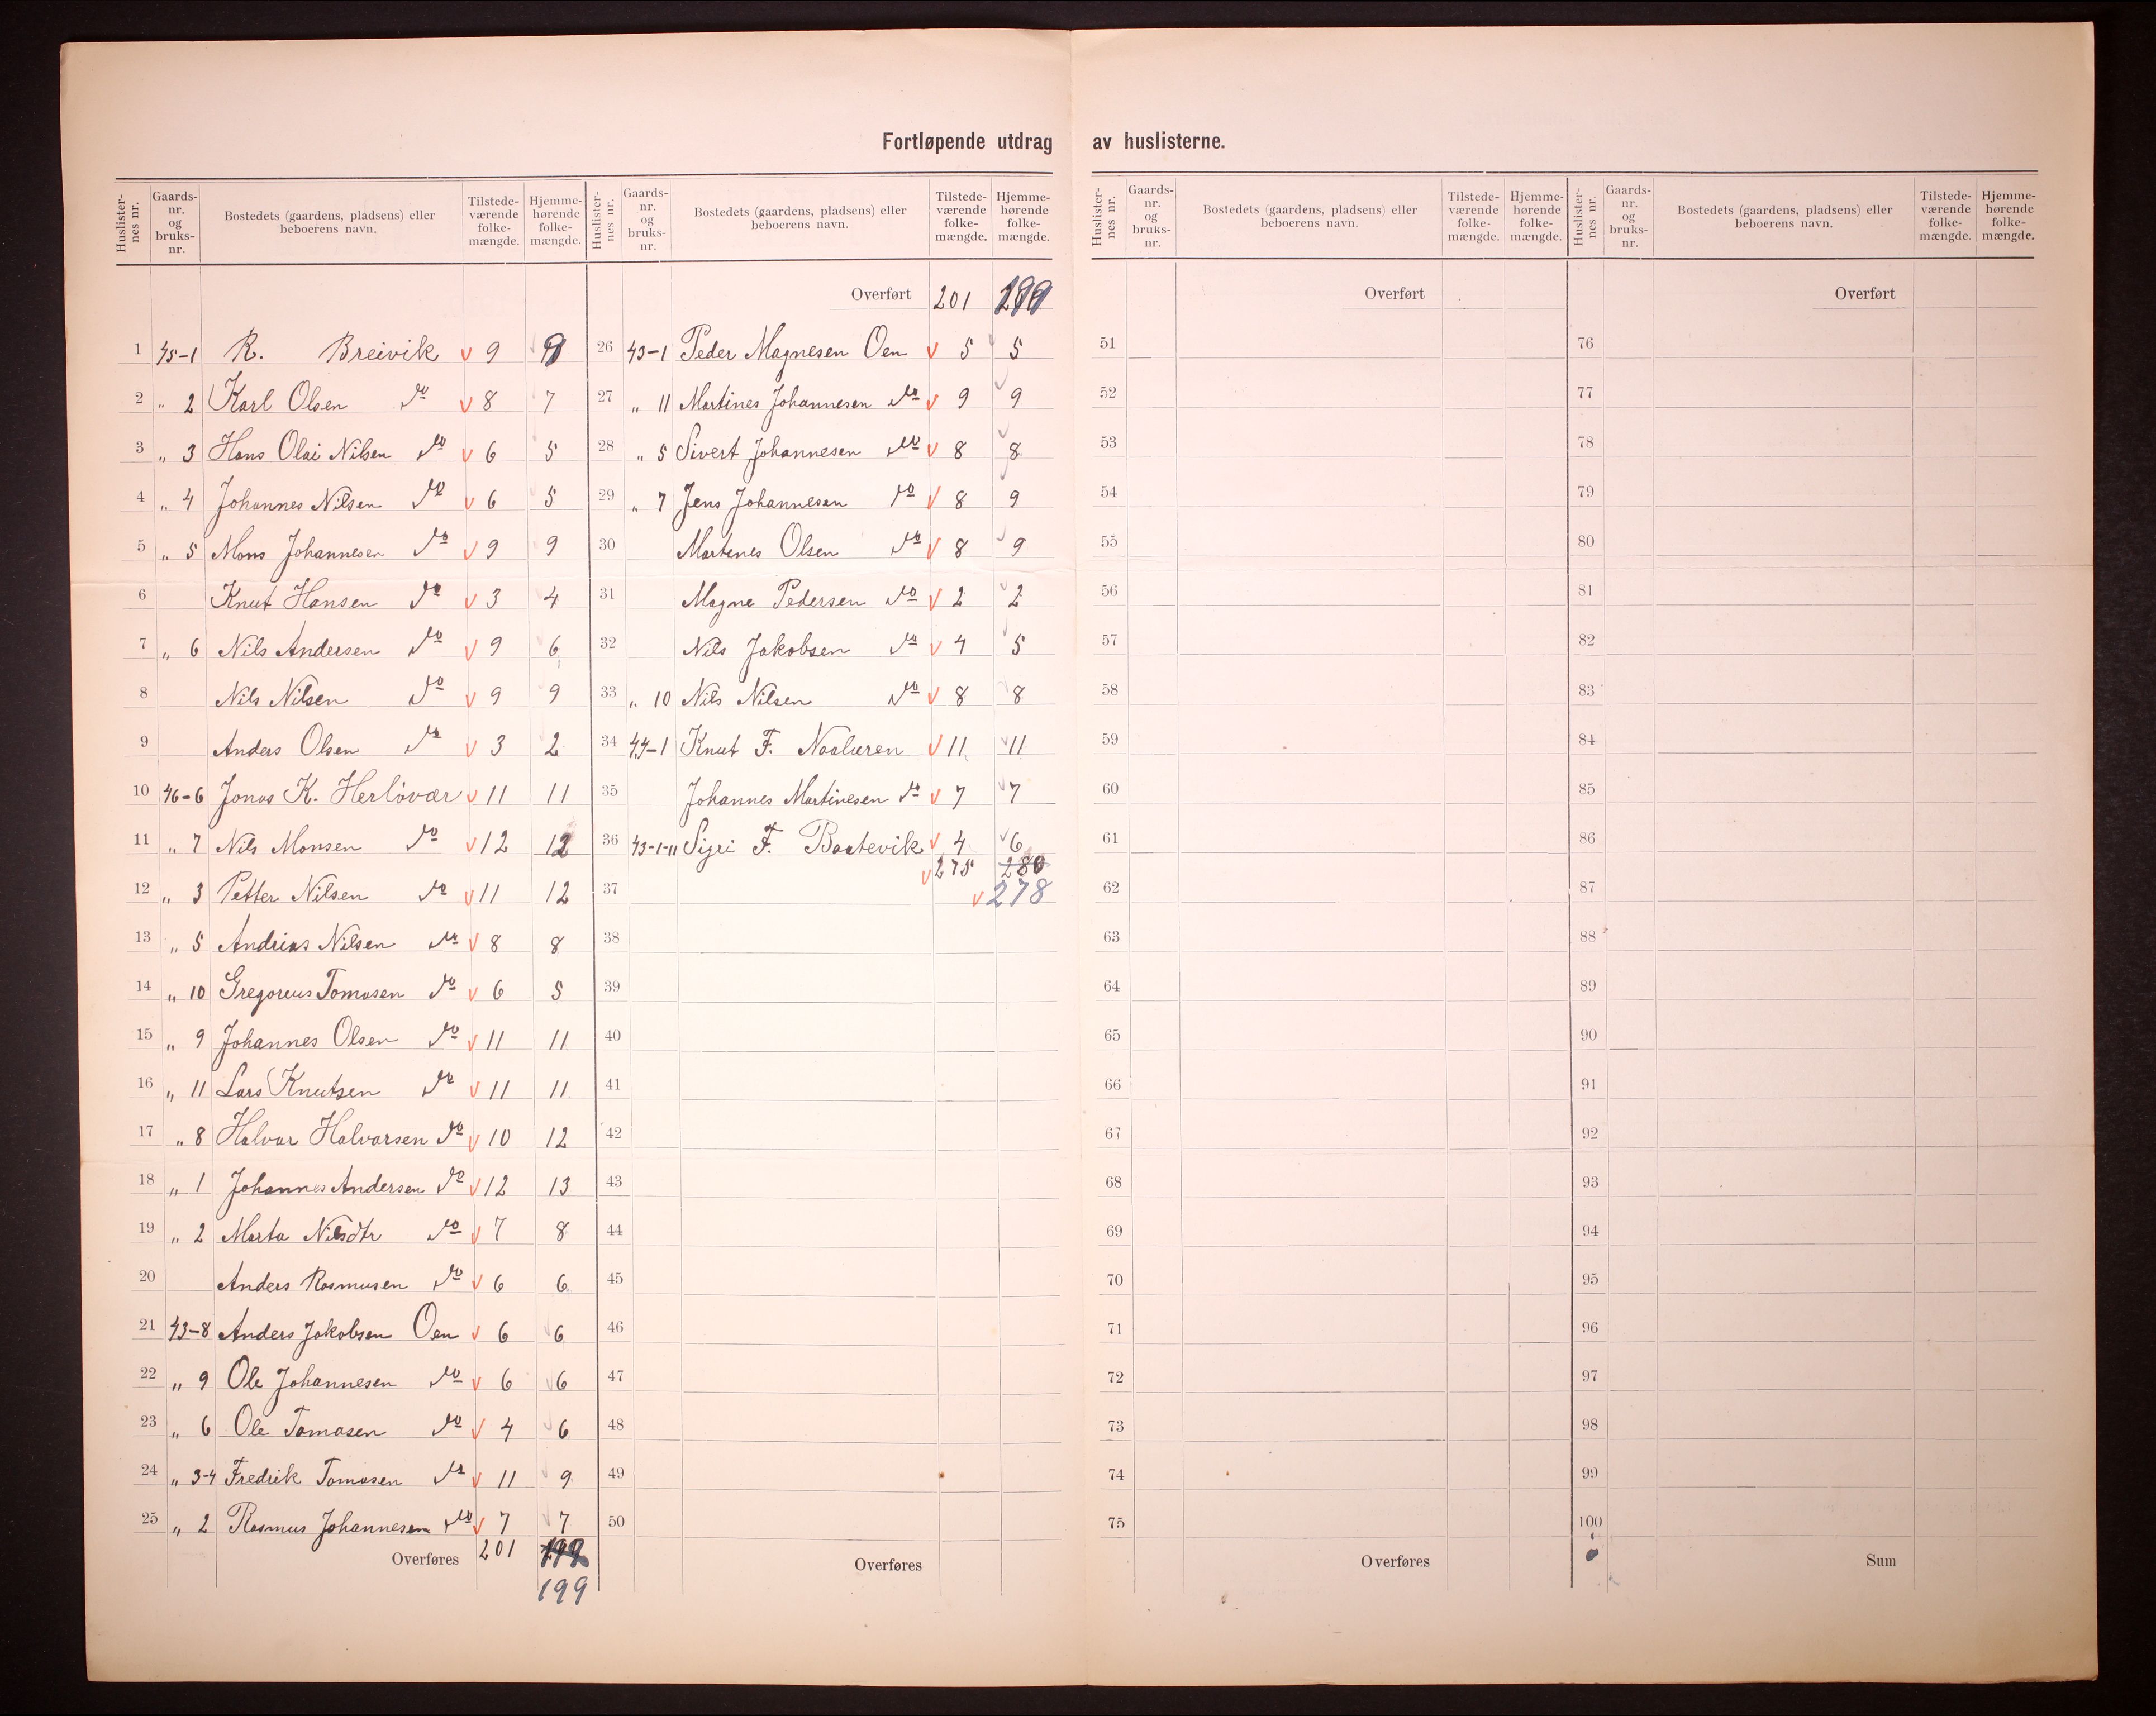 Fortløpende utdrag av huslisterne.
Huslisternes nr. Gaards-nr. og bruks-nr. Bostedets (gaardens, pladsens) eller beboerens navn. Tilstedeværende folkemængde. Hjemmehørende folkemængde.
1 45-1 R. Breivik v 9
2 " 2 Karl Olsen do v 8 7
3 " 3 Hans Olai Nilsen do v 6 5
4 " 4 Johannes Nilsen do v 6 5
5 " 5 Mons Johannesen do v 9 9
6 Knut Hansen do v 3 4
7 " 6 Nils Andersen do v 9 6
8 Nils Nilsen do v 9 9
9 Anders Olsen do v 3 2
10 46-6 Jonas K. Herløvær v 11 11
11 " 7 Nils Monsen do v 12 12
12 " 3 Petter Nilsen do v 11 12
13 " 5 Andreas Nilsen do v 8 8
14 " 10 Gregoreus Tomasen do v 6 5
15 " 9 Johannes Olsen do v 11 11
16 " 11 Lars Knutsen do v 11 11
17 " 8 Halvar Halvorsen do v 10 12
18 " 1 Johannes Andersen do v 12 13
19 " 2 Marta Nilsdtr do v 7 8
20 Anders Rasmusen do v 6 6
21 43-8 Anders Jakobsen Oen v 6 v 6
22 " 9 Ole Johannesen do v 6 v 6
23 " 6 Ole Tomasen do v 4 v 6
24 " 3-4 Fredrik Tomasen do v 11 v 9
25 " 2 Rasmus Johannesen do v 7 v 7
Overføres 201
199
Huslisternes nr. Gaards-nr. og bruks-nr. Bostedets (gaardens, pladsens) eller beboerens navn. Tilstedeværende folkemængde. Hjemmehørende folkemængde.
Overført 201 199
26 43-1 Peder Magnesen Oen v 5 v 5
27 " 11 Martines Johannesen do v 9 v 9
28 " 5 Sivert Johannesen do v 8 v 8
29 " 7 Jens Johannesen do v 8 v 9
30 Martenes Olsen do v 8 v 9
31 Magne Pedersen do v 2 v 2
32 Nils Jakobsen do v 4 v 5
33 " 10 Nils Nilsen do v 8 v 8
34 44-1 Knut F. Naaløren v 11 v 11
35 Johannes Martinesen do v 7 v 7
36 43-1-11 Sigri F. Baatevik v 4 v 6
v 275 280
37 v 278
38
39
40
41
42
43
44
45
46
47
48
49
50
Overføres
Huslisternes nr. Gaards-nr. og bruks-nr. Bostedets (gaardens, pladsens) eller beboerens navn. Tilstedeværende folkemængde. Hjemmehørende folkemængde.
Overført
51
52
53
54
55
56
57
58
59
60
61
62
63
64
65
66
67
68
69
70
71
72
73
74
75
Overføres
Huslisternes nr. Gaards-nr. og bruks-nr. Bostedets (gaardens, pladsens) eller beboerens navn. Tilstedeværende folkemængde. Hjemmehørende folkemængde.
Overført
76
77
78
79
80
81
82
83
84
85
86
87
88
89
90
91
92
93
94
95
96
97
98
99
100
Sum